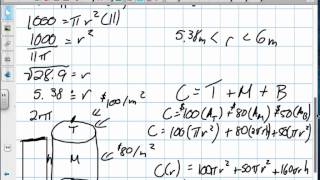 1000 = π r² (11)
1000 / 11π = r²
√28.9 = r
5.38 = r
2πr
$100/m²
T
M
h
$80/m²
5.38m < r < 6m
C = T + M + B
C = $100(A_T) + $80(A_M) $50(A_B)
C = 100(πr²) + 80(2πrh) + 50(πr²)
C(r) = 100πr² + 50πr² + 160πrh